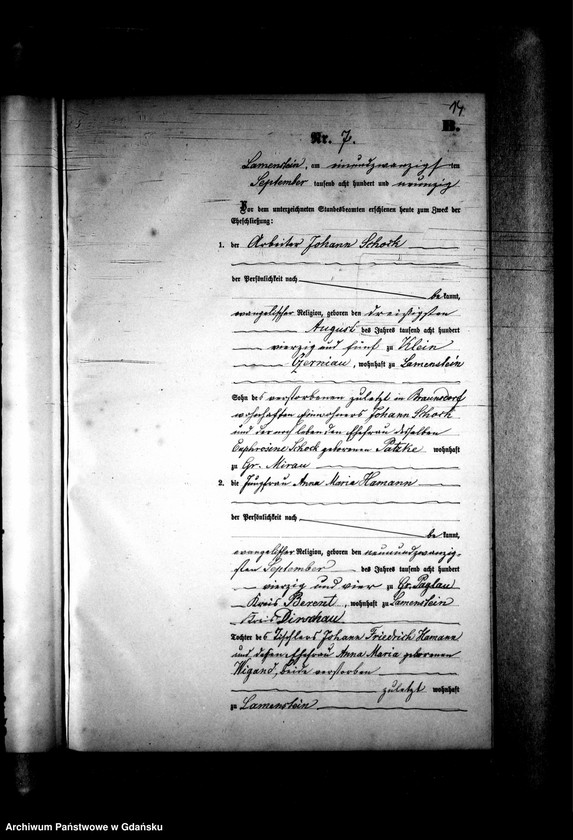 14
B.
Nr. 7.
Lamenstein, am einundzwanzigsten
September tausend acht hundert und neunzig
Vor dem unterzeichneten Standesbeamten erschienen heute zum Zweck der
Eheschließung:
1. der Arbeiter Johann Schock
der Persönlichkeit nach
be kannt,
evangelischer Religion, geboren den dreißigsten
August des Jahres tausend acht hundert
vierzig und fünf zu Klein
Czerniau, wohnhaft zu Lamenstein
Sohn des verstorbenen zuletzt in Braunsdorf
wohnhaften Einwohners Johann Schock
und der noch lebenden Ehefrau desselben
Euphrosine Schock geborenen Patzke wohnhaft
zu Gr. Mirau
2. die Jungfrau Anna Maria Hamann
der Persönlichkeit nach
be kannt,
evangelischer Religion, geboren den neunundzwanzig-
sten September des Jahres tausend acht hundert
vierzig und vier zu Gr. Paglau
Kreis Berent, wohnhaft zu Lamenstein
Kreis Dirschau
Tochter des Tischlers Johann Friedrich Hamann
und dessen Ehefrau Anna Maria geborenen
Wigand, beide verstorben
zuletzt wohnhaft
zu Lamenstein
Archiwum Państwowe w Gdańsku